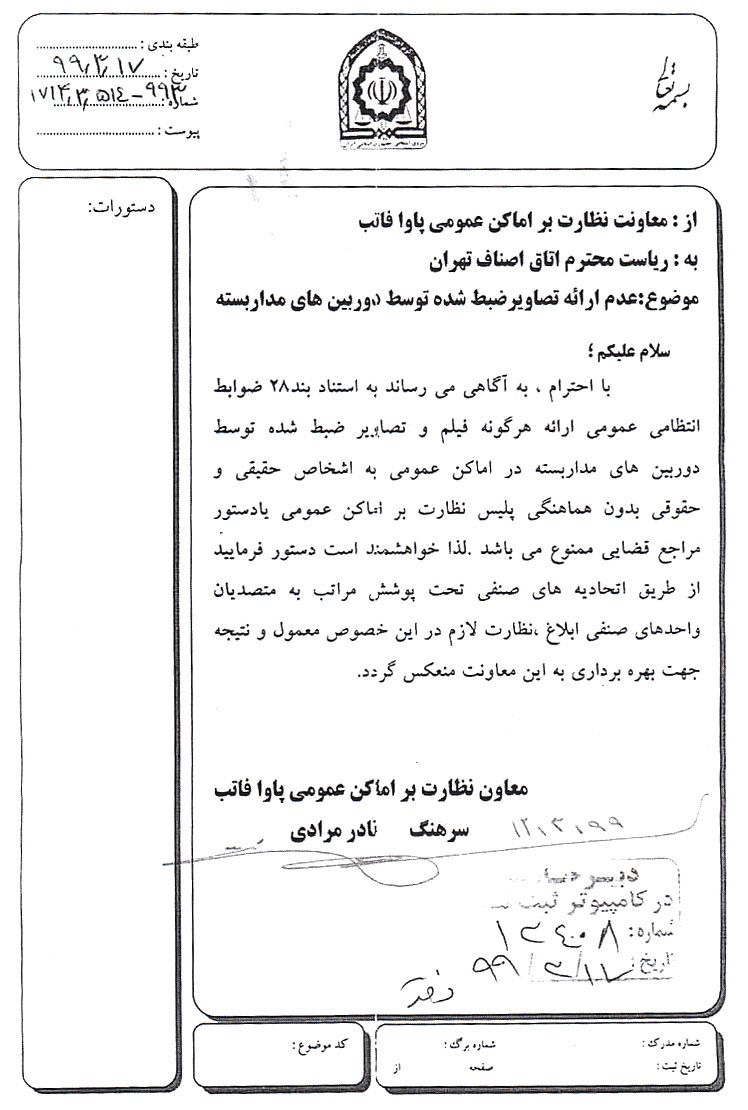 بسمه تعالی
طبقه بندی :
تاریخ : ۹۹٫۳٫۱۷
شماره:
پیوست :
نیروی انتظامی جمهوری اسلامی ایران
دستورات:
از : معاونت نظارت بر اماکن عمومی پاوا فاتب
به : ریاست محترم اتاق اصناف تهران
موضوع:عدم ارائه تصاویرضبط شده توسط دوربین های مداربسته
سلام علیکم ؛
با احترام ، به آگاهی می رساند به استناد بند۲۸ ضوابط
انتظامی عمومی ارائه هرگونه فیلم و تصاویر ضبط شده توسط
دوربین های مداربسته در اماکن عمومی به اشخاص حقیقی و
حقوقی بدون هماهنگی پلیس نظارت بر اماکن عمومی یادستور
مراجع قضایی ممنوع می باشد .لذا خواهشمند است دستور فرمایید
از طریق اتحادیه های صنفی تحت پوشش مراتب به متصدیان
واحدهای صنفی ابلاغ ،نظارت لازم در این خصوص معمول و نتیجه
جهت بهره برداری به این معاونت منعکس گردد.
معاون نظارت بر اماکن عمومی پاوا فاتب
سرهنگ نادر مرادی
در کامپیوتر ثبت
شماره:
تاریخ:
کد موضوع :
شماره مدرک :
شماره برگ :
تاریخ ثبت :
صفحه
از